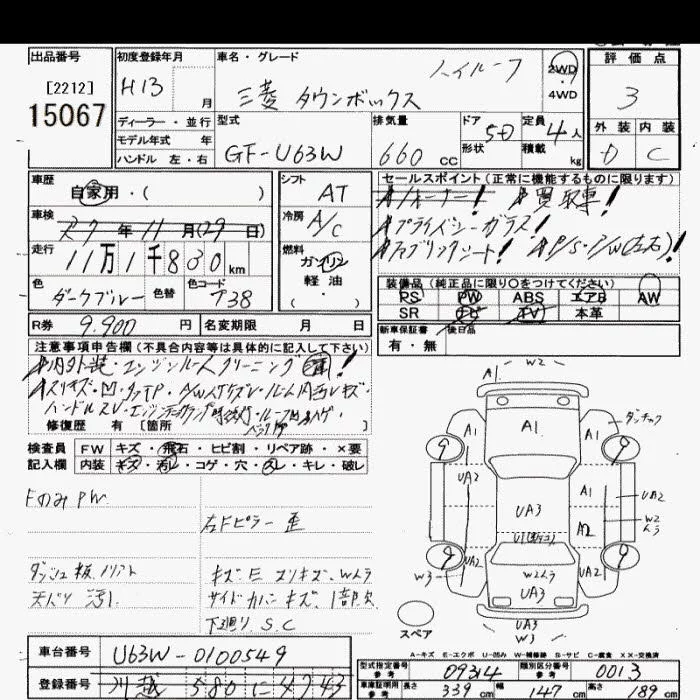 出品番号
[2212]
15067
初度登録年月
H13 月
車名・グレード
ハイルーフ
三菱 タウンボックス
2WD
4WD
評価点
3
外装 内装
D C
ディーラー・並行
モデル年式 年
ハンドル 左・右
型式
GF-U63W
排気量
660 cc
ドア 5D
形状
定員 4人
積載 kg
車歴
自家用・( )
車検
年11月(29日)
走行
11万1千830km
色
ダークブルー
色替
色コード
T38
シフト
AT
冷房
A/C
燃料
ガソリン
軽油
( ・ )
セールスポイント(正常に機能するものに限ります)
ワンオーナー! 買取車!
プライバシーガラス!
ファブリックシート! P/S・P/W(左右)!
装備品(純正品に限り○をつけてください)
PS PW ABS エアB AW
SR ナビ TV 本革
新車保証書
有・無
後日品
R券 9.900 円
名変期限 月 日
注意事項申告欄(不具合内容等は具体的に記入して下さい)
内外装・エンジンルームクリーニング済!
スリキズ・凹・タッチP・A/Wスリキズ・ルーム内キズ・
ハンドルスレ・エンジンチェックランプ
修復歴 有 [箇所
検査員
記入欄
FW キズ・飛石・ヒビ割・リペア跡・×要
内装 キズ・汚レ・コゲ・穴・スレ・キレ・破レ
FのみPW
右Fピラー歪
ダッシュ板ノリアト
天バリ 汚レ
キズ E スリキズ、Wムラ
サイドカバーキズ、1部欠
下廻り S.C
A1 W2
A1
A1
ダッチコ
9
9
UA2
A1
UA2
UA3
A2
W2
ムラ
9
9
W3
UA2
W2ムラ
UA2
UA3
UA3
W3
スペア
A-キズ E-エクボ U-凹み W-補修跡 S-サビ C-腐食 XX-交換済
車台番号
U63W-0100549
登録番号
川越 580に4743
型式指定番号
参考
09314
類別区分番号
参考
0013
車庫証明用
参考
長さ 339 cm 幅 147 cm 高さ 189 cm